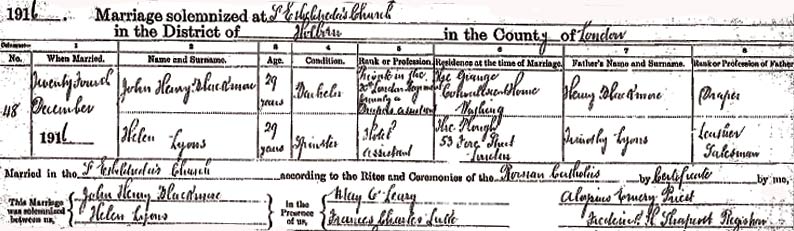 1916. Marriage solemnized at St Etheldreda's Church
in the District of Holborn in the County of London
Columns:— 1 2 3 4 5 6 7 8
No. When Married. Name and Surname. Age. Condition. Rank or Profession. Residence at the time of Marriage. Father's Name and Surname. Rank or Profession of Father
48 Twenty Fourd December 1916 John Henry Blackmore 29 years Bachelor Private in the 20th London Regiment formerly a Drapers assistant The Grange Convalescent Home Worthing Henry Blackmore Draper
Helen Lyons 29 years Spinster Hotel assistant The Plough 53 Fore Street London Timothy Lyons Leather Salesman
Married in the St Etheldreda's Church according to the Rites and Ceremonies of the Roman Catholics by Certificate by me,
This Marriage was solemnized between us, John Henry Blackmore Helen Lyons in the Presence of us, May O'Leary Frances Charles Aloysius Emery Priest
Frederick H Registrar